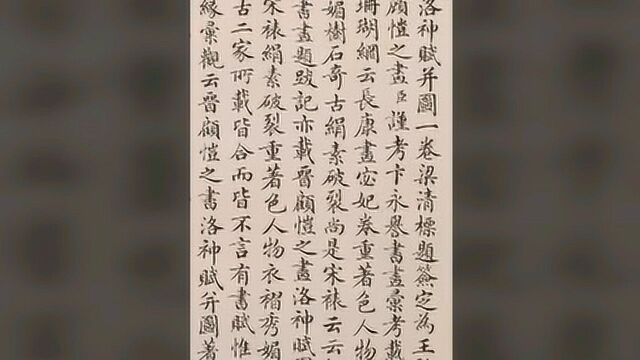 洛神賦并圖一卷梁清標題簽定為王
顧愷之畫臣謹考卞永譽書畫彙考載
珊瑚網云長康畫宓妃拳重著色人物
媚樹石奇古絹素破裂尚是宋裱云云
書畫題跋記亦載晋顧愷之畫洛神賦
宋裱絹素破裂重著色人物衣褶秀媚
古二家所載皆合而皆不言有書賦惟
緣彙觀云晋顧愷之書洛神賦并圖著